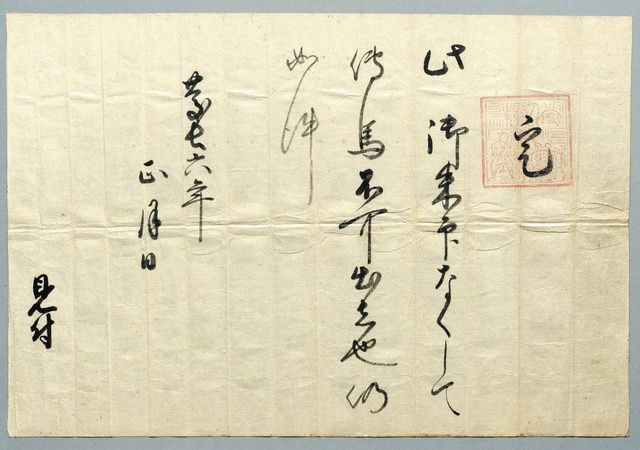 定
此御朱印なくして
傳馬不可出者也仍
如件
慶長六年
正月日
見付